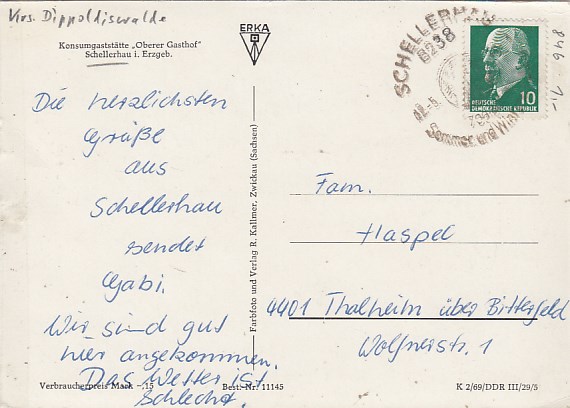 Krs. Dippoldiswalde
Konsumgaststätte „Oberer Gasthof"
Schellerhau i. Erzgeb.
ERKA
SCHELLERHAU
8238
Sommer und Win
10
DEUTSCHE
DEMOKRATISCHE REPUBLIK
846 1,-
Die herzlichsten
Grüße
aus
Schellerhau
sendet
Gabi.
Wir sind gut
hier angekommen.
Das Wetter ist
schlecht.
Farbfoto und Verlag R. Kallmer, Zwickau (Sachsen)
Fam.
Haspel
4401 Thalheim über Bitterfeld
Wolfnerstr. 1
Verbraucherpreis Mark -,15
Best.-Nr. 11145
K 2/69/DDR III/29/5